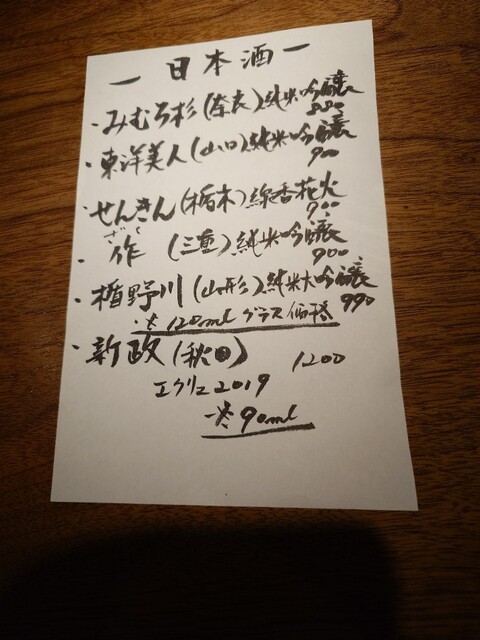 ー日本酒ー
・みむろ杉(奈良)純米吟醸
880
・東洋美人(山口)純米吟醸
900
・せんきん(栃木)線香花火
900
ざく
・作(三重)純米吟醸
900
・楯野川(山形)純米大吟醸
990
※120mlグラス価格
・新政(秋田) 1200
エクリュ2019
※90ml